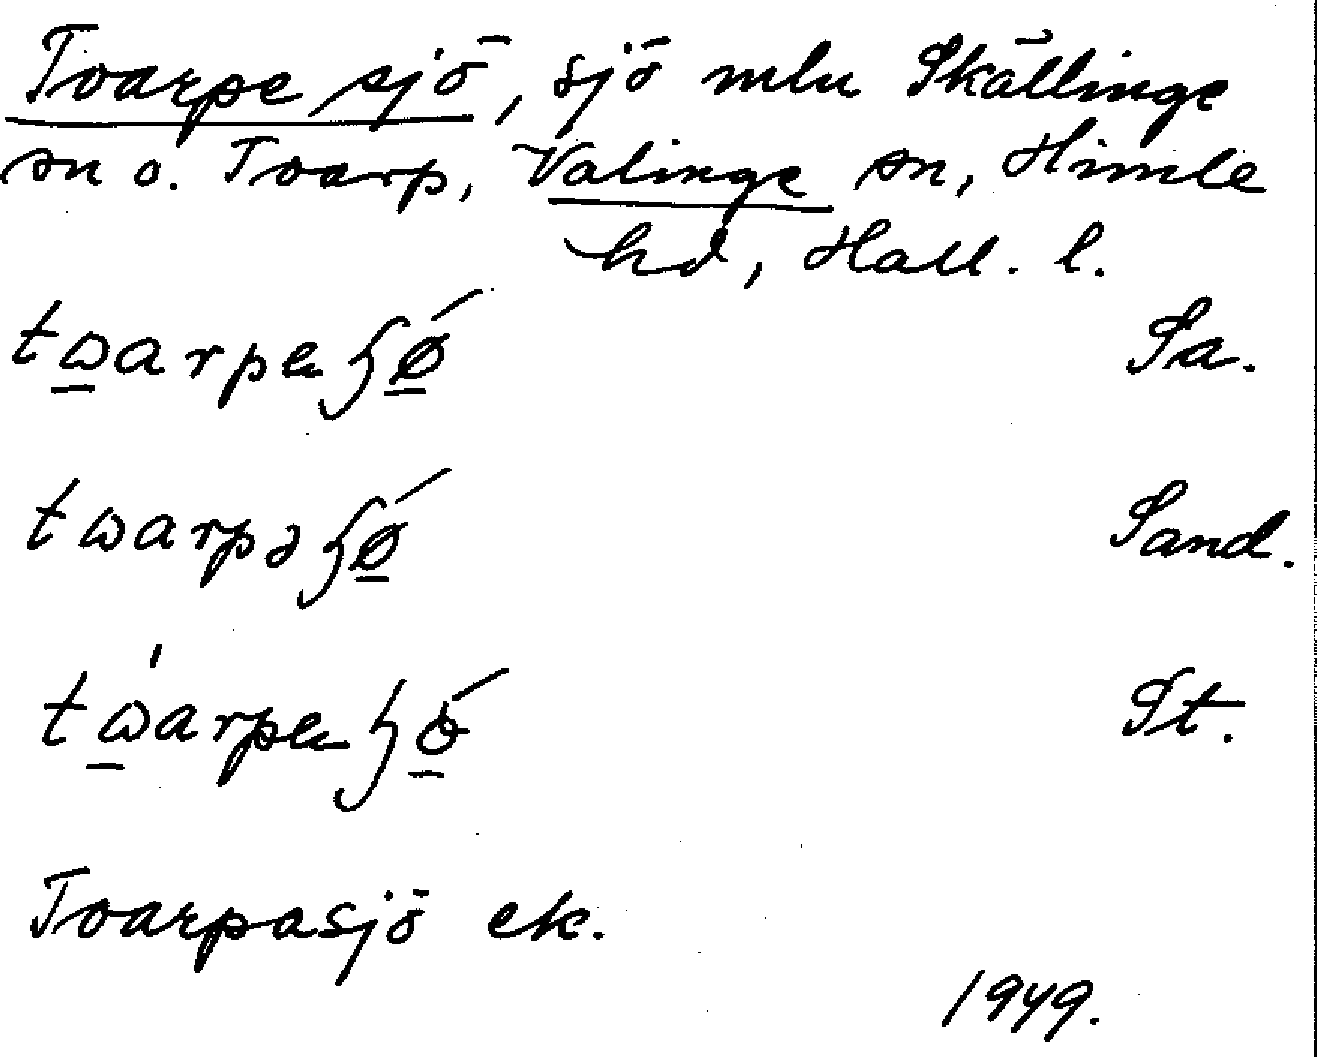 Tvarpe sjö, sjö mln Skällinge
sn o. Tvarp, Valinge sn, Himle
hd, Hall. l.
twarpeʃø Sa.
twarpəʃø Sand.
twarpeʃö St.
Tvarpasjö ek.
1949.